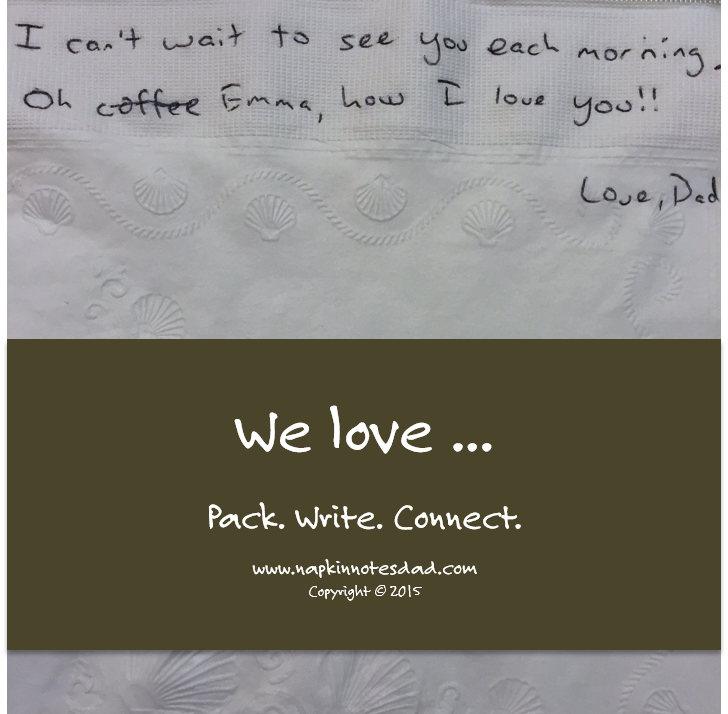 I can't wait to see you each morning.
Oh coffee Emma, how I love you!!
Love, Dad
We love ...
Pack. Write. Connect.
www.napkinnotesdad.com
Copyright © 2015